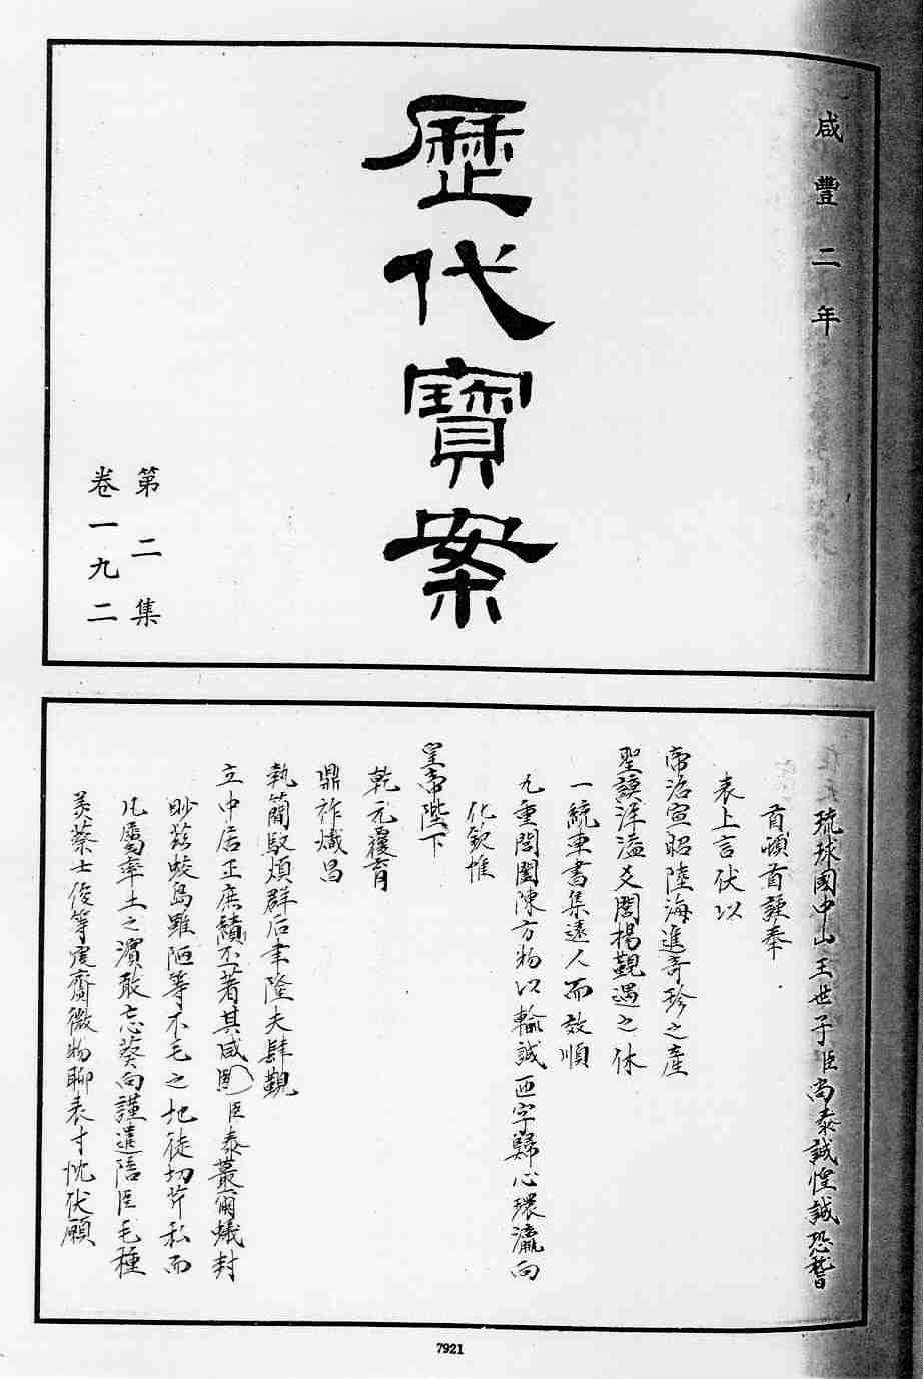 咸豐二年
歷代寶案
第二集
卷一九二
琉球國中山王世子臣尚泰誠惶誠恐稽
首頓首謹奉
表上言伏以
帝治宣昭陸海進奇珍之產
聖謨洋溢爻閭揚觀遇之休
一統車書集遠人而效順
九重閶闔陳方物以輸誠匝宇歸心環瀛向
化欽惟
皇帝陛下
乾元覆育
鼎祚熾昌
執簡馭煩群后聿隆夫肆觀
立中居正庶績丕著其咸熙臣泰蕞爾蟻封
眇茲蛟島雖陋等不毛之地徒切芹私而
凡屬率土之濱敢忘葵向謹遣陪臣毛種
美蔡士俊等虔齎微物聊表寸忱伏願
7921